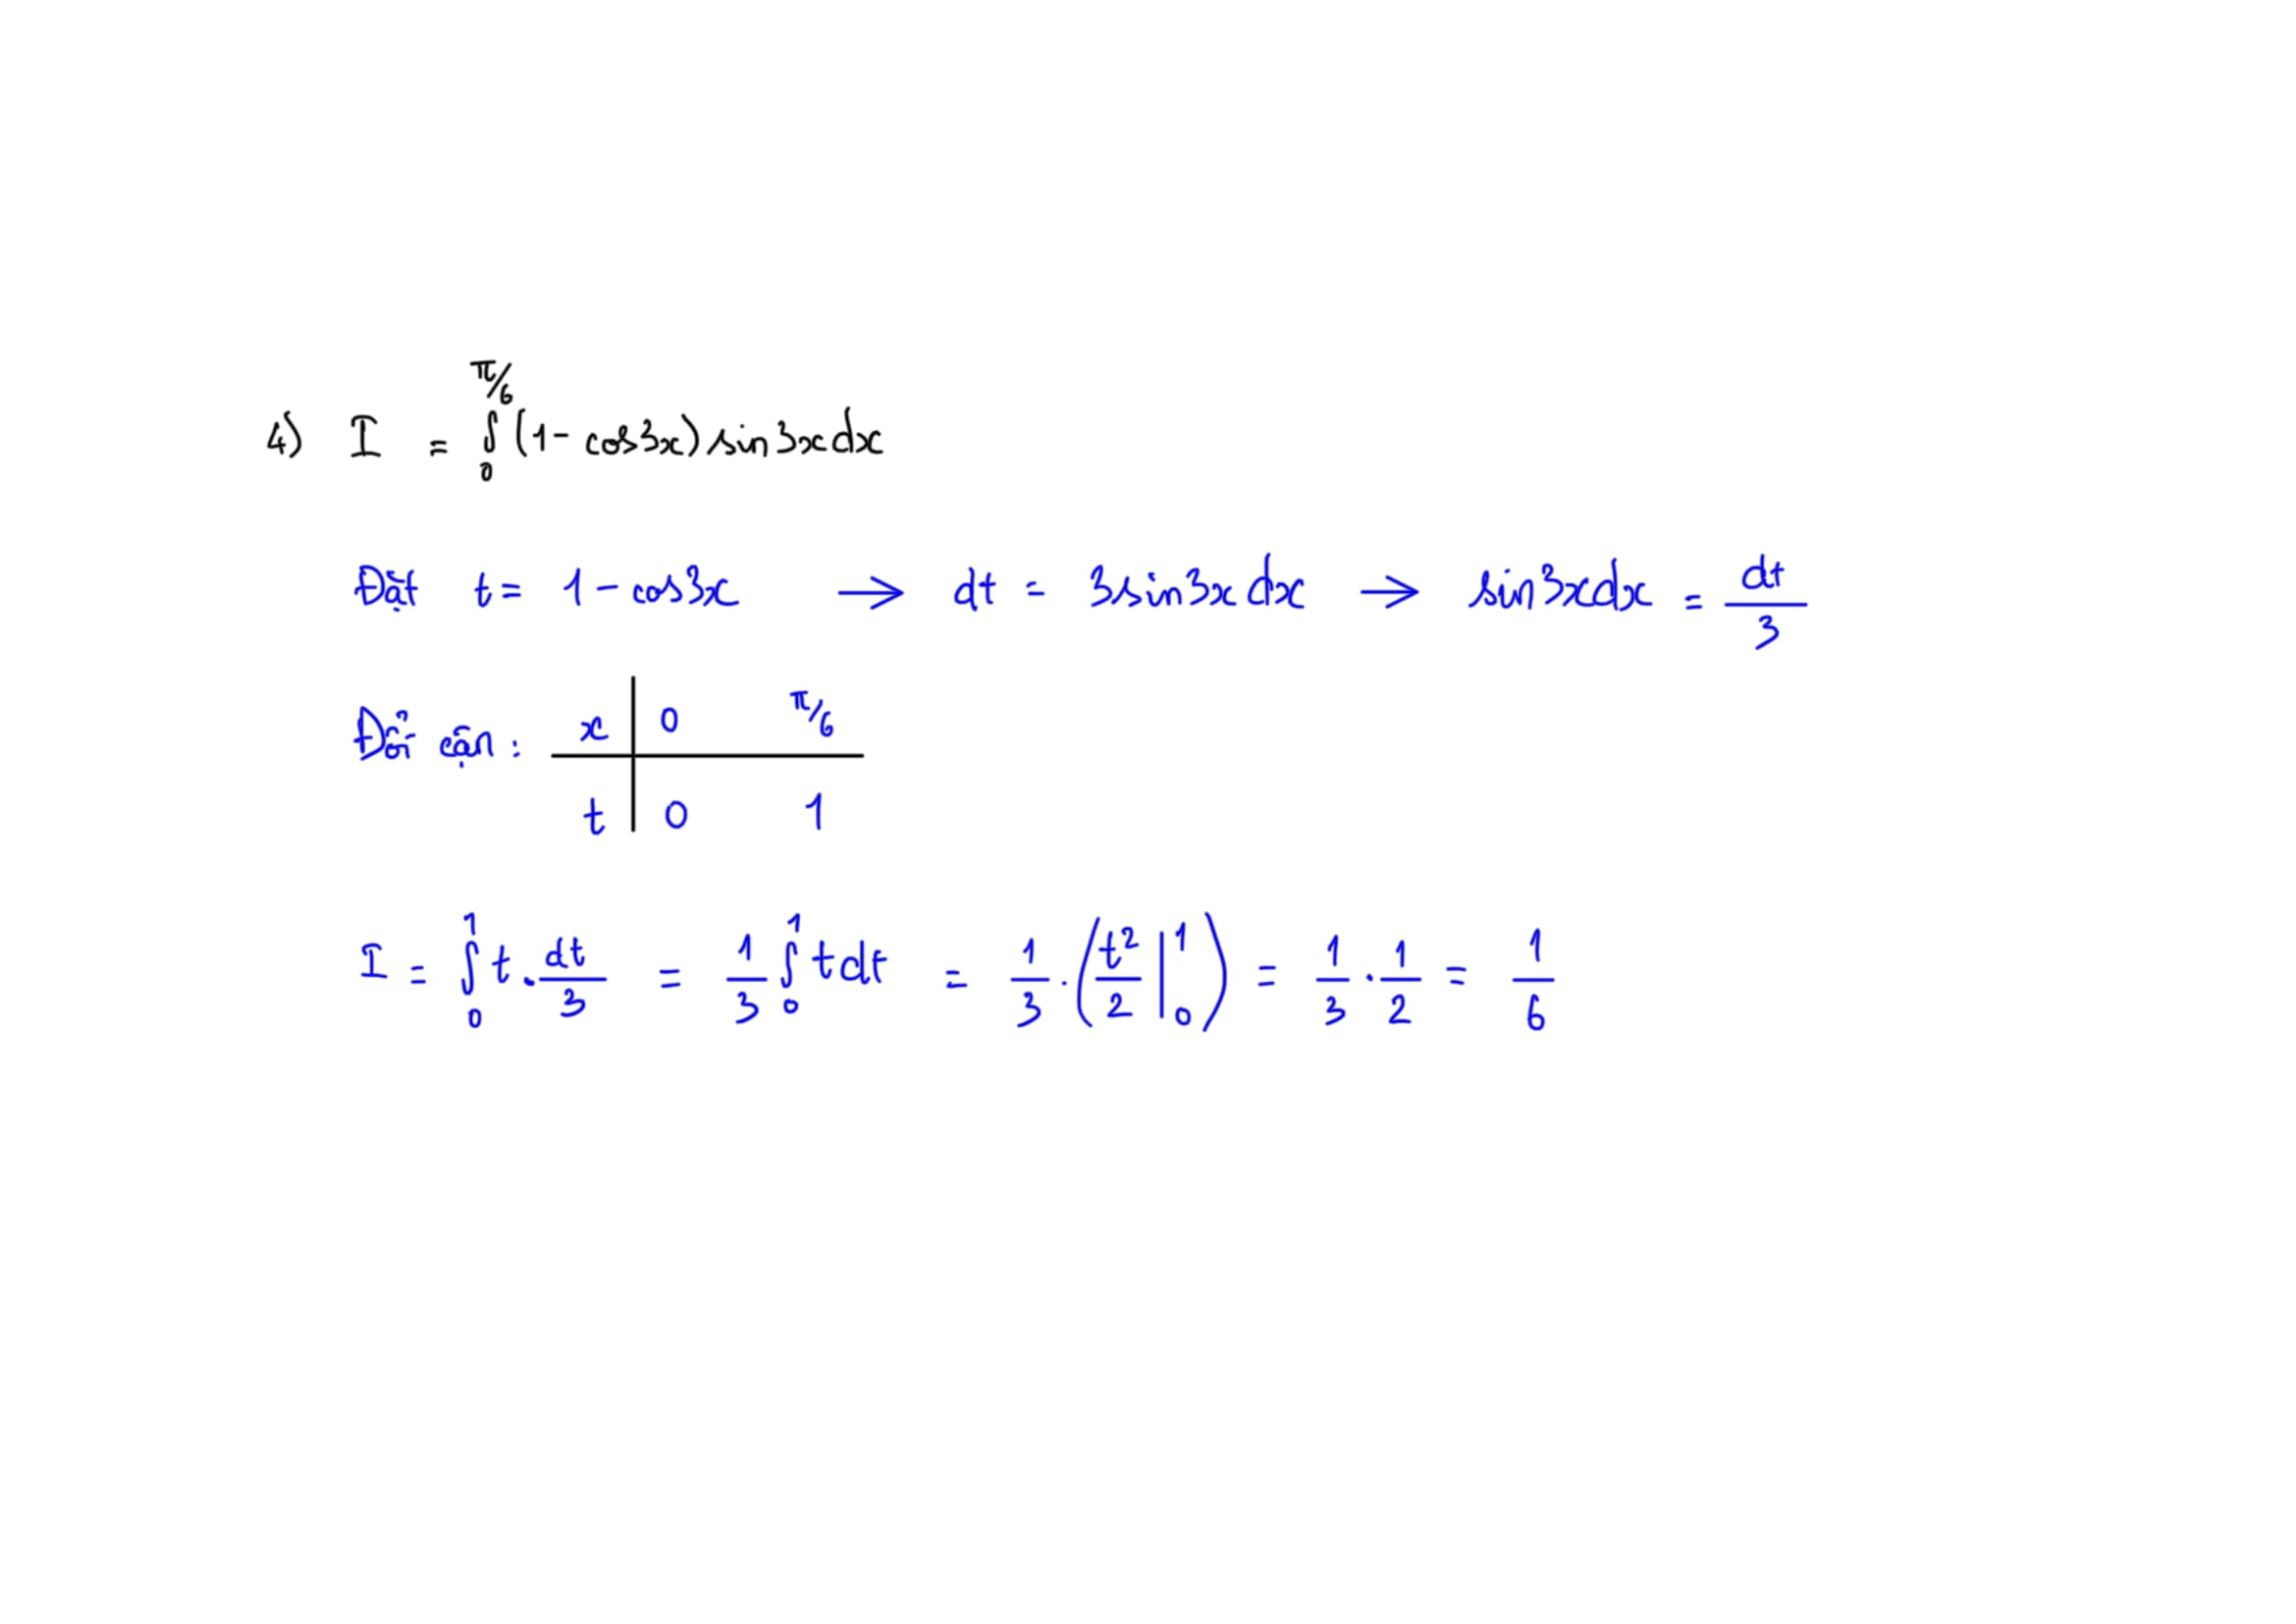 4) I = ∫₀^{π/6} (1 - cos3x) sin3xdx
Đặt t = 1 - cos3x → dt = 3sin3xdx → sin3xdx = dt/3
Đổi cận : x | 0 π/6
t | 0 1
I = ∫₀¹ t . dt/3 = 1/3 ∫₀¹ tdt = 1/3 . (t²/2 |₀¹) = 1/3 . 1/2 = 1/6